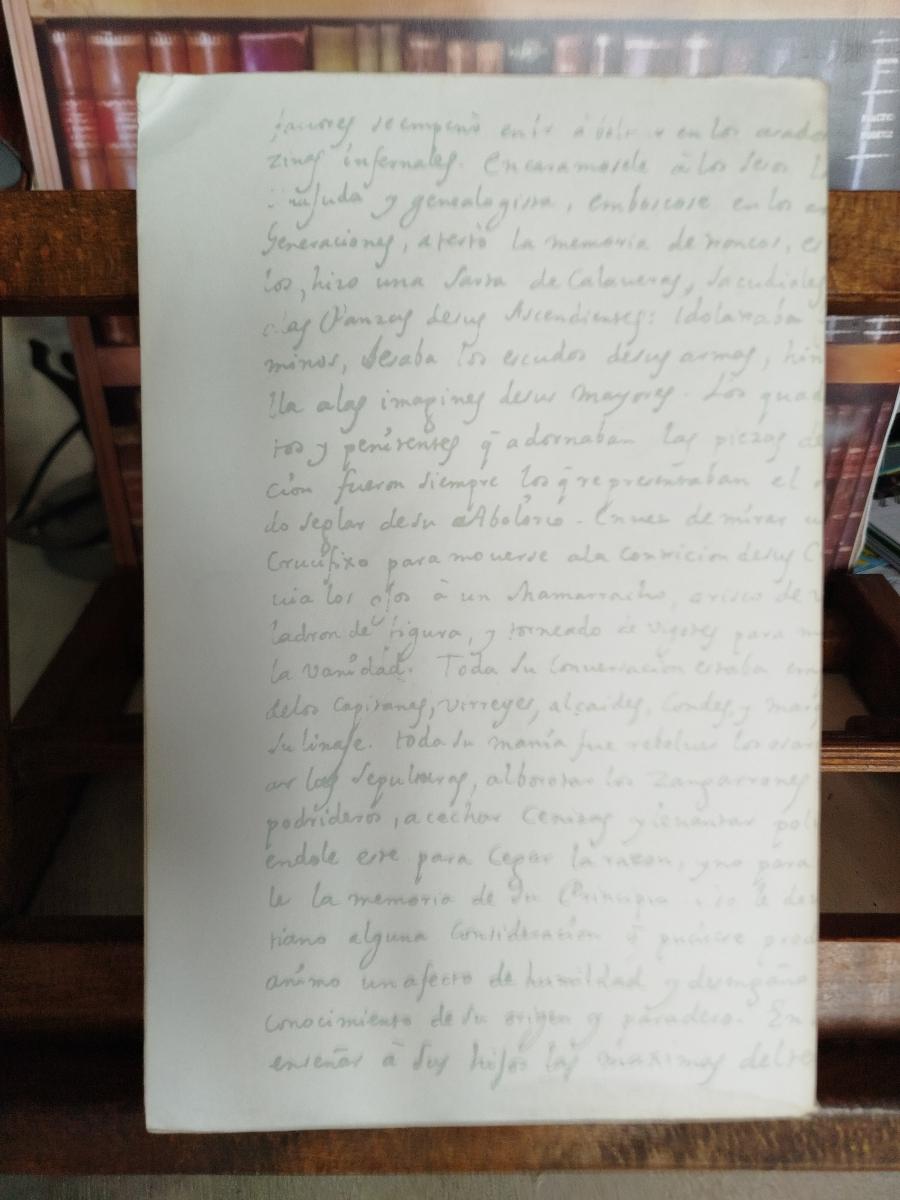 se empeño en ir a en los
zinas infernales. Encaramosele à los sesos
y genealogista, emboscose en los
Generaciones, atestò la memoria de troncos, es
los, hizo una Sarta de Calaueras, sacudioles
las Panzas desus Ascendientes: Idolatraba
minos, besaba los escudos desus armas, hin
lla alas imagines desus mayores. Los quad
tos y penitentes q̄ adornaban las piezas de
ción fueron siempre los q̄ representaban el
do seglar de su Abolorio. En uez de mirar u
Crucifixo para mouerse ala Contricion desus C
uia los ojos à un Mamarracho, a risco de
ladron de figura, y torneado de vigotes para m
la vanidad. Toda su Conuersacion estaba
delos Capitanes, virreyes, alcaides, Condes, y marq
su linaje. toda su manía fue reboluer los osar
ar las sepulturas, alborotar los Zangarrones
podrideros, acechar Cenizas y leuantar pol
endole este para Cegar la razon, y no para
le la memoria de su Principio
tiano alguna Consideracion q̄ pudiese prod
animo un afecto de humildad y desengaño
Conocimiento de su origen y paradero. En
enseñar à Sus hijos las maximas del